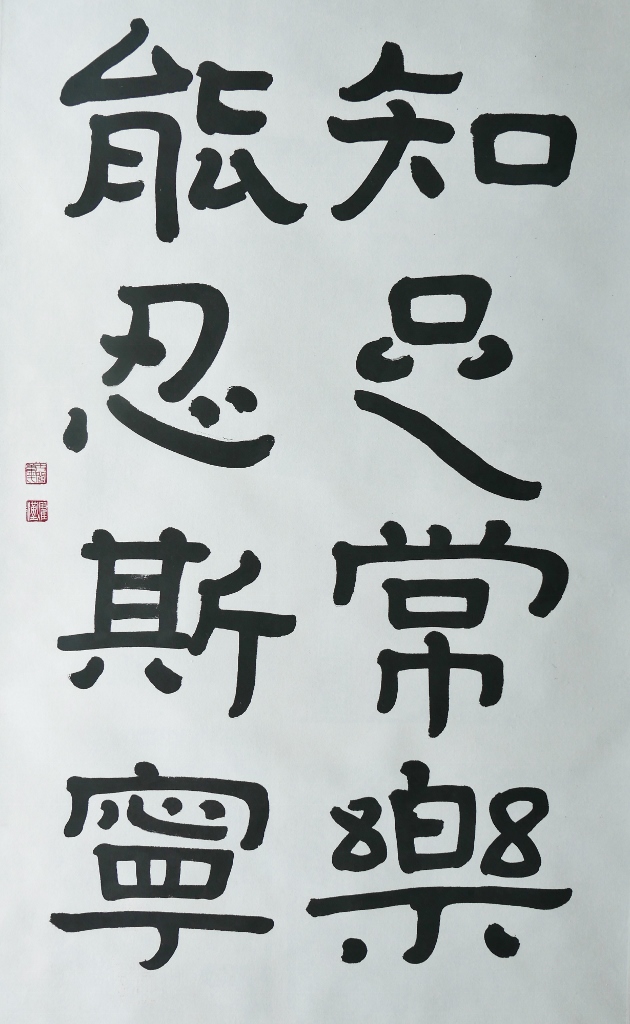 知足常樂
能忍斯寧